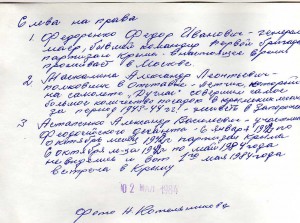 Слева на право
1 Федоренко Федор Иванович - генерал
майор, бывший командир первой бригады
партизан Крыма - в настоящее время
проживает в Москве.
2 Александр Леонтьевич -
полковник в отставке - летчик, который
на самолете "Дуглас" совершил самое
большое количество посадок в крымских лесах
за период 1942-43 - живет в
3 Александр Васильевич - участник
Феодосийского десанта - 6 января 1942 по
октября месяц партизан Крыма
6 октября по май 1984 года
не виделись и вот 2го мая 1984 года
встреча в Крыму
02 МАЙ 1984
Фото Н.